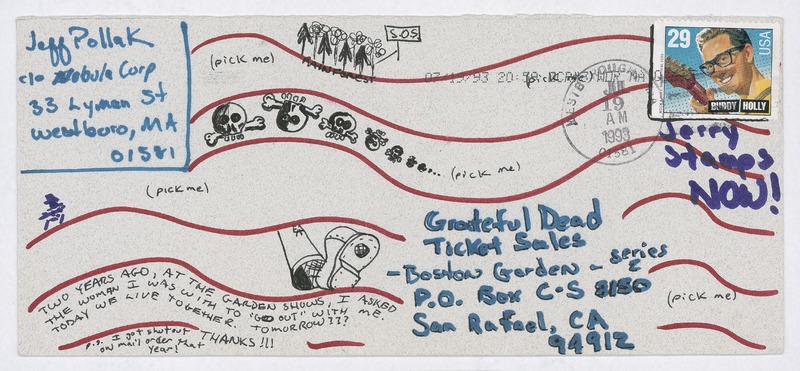 Jeff Pollak
c/o Nebula Corp
33 Lyman St
Westboro, MA
01581
(pick me)
S.O.S
RAINFOREST
(pick me)
29
USA
BUDDY HOLLY
WESTBOROUGH
JUL
19
AM
1993
01581
Jerry
Stamps
NOW!
(pick me)
(pick me)
Grateful Dead
Ticket Sales
-Boston Garden - series 2
P.O. Box C-S 8150
San Rafael, CA
94912
(pick me)
TWO YEARS AGO, AT THE GARDEN SHOWS, I ASKED
THE WOMAN I WAS WITH TO "GO OUT" WITH ME.
TODAY WE LIVE TOGETHER. TOMORROW???
THANKS!!!
p.s. I got shutout
on mail order that
year!